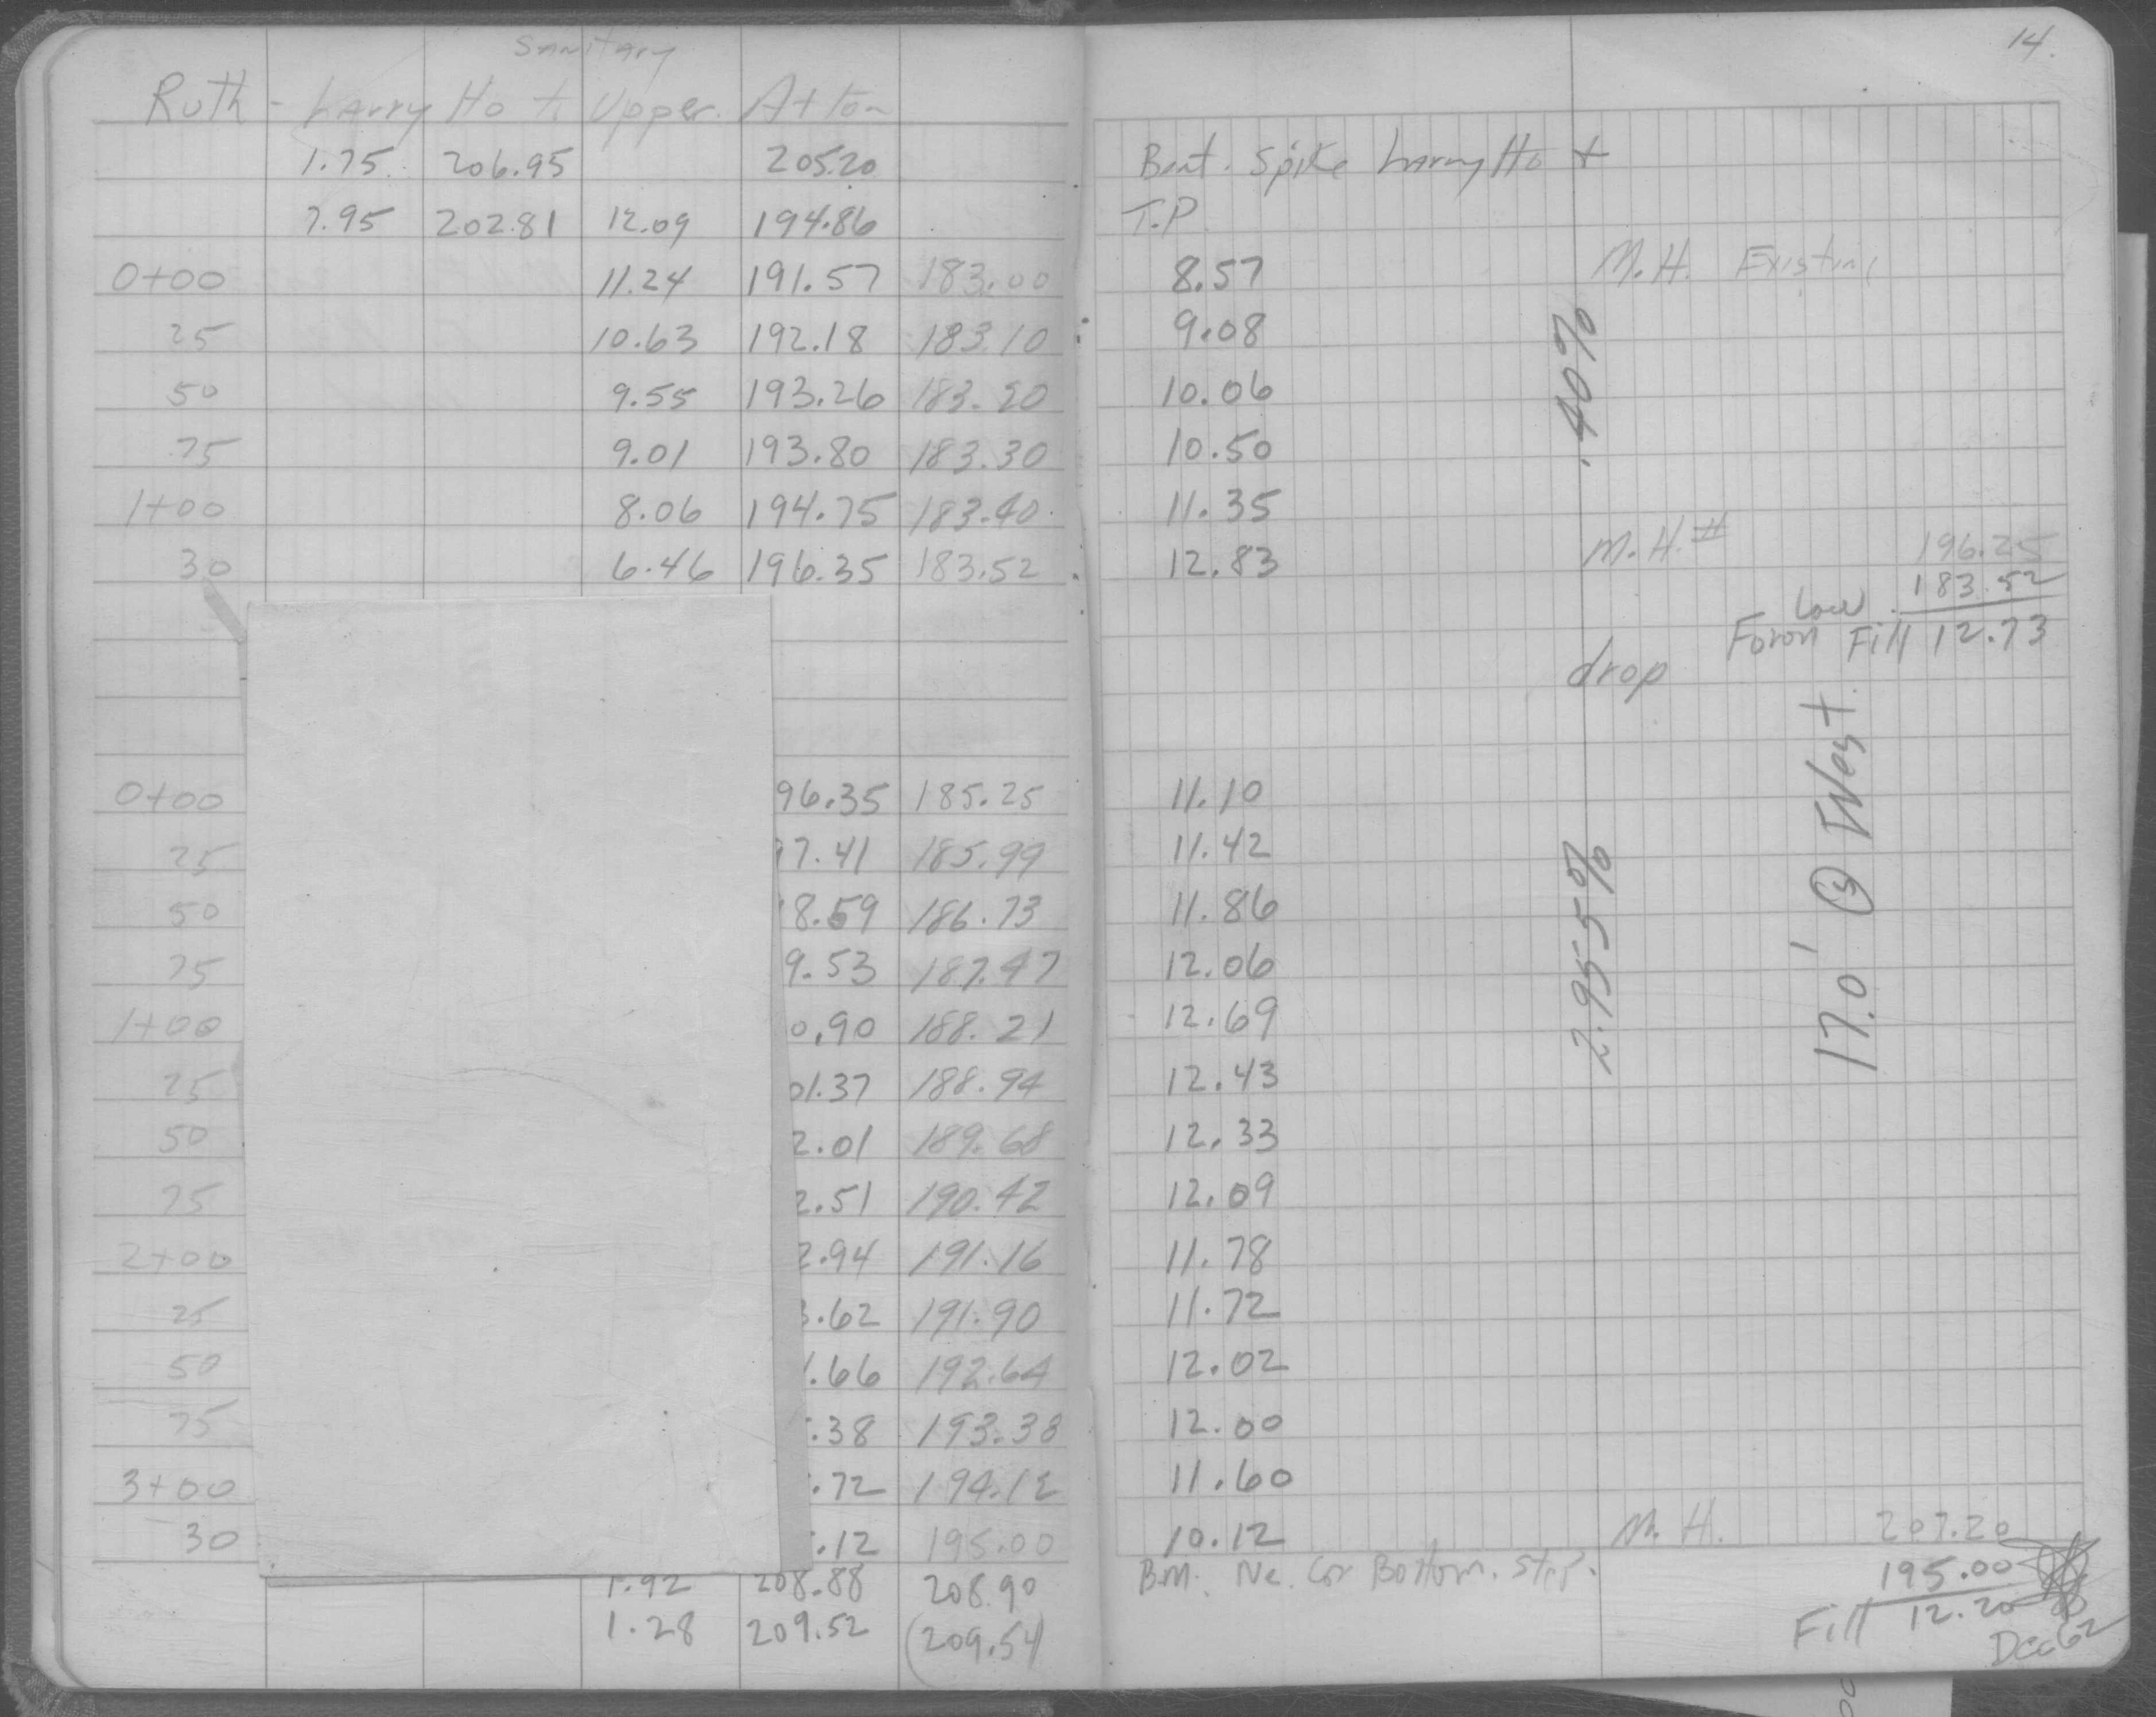 14.
Sanitary
Ruth - Larry Ho t Upper. Atton
1.75 206.95 205.20 Bent. Spike Larry Ho t
7.95 202.81 12.09 194.86 T.P
0+00 11.24 191.57 183.00 8.57 M.H. Existing
25 10.63 192.18 183.10 9.08
50 9.55 193.26 183.20 10.06 .40%
75 9.01 193.80 183.30 10.50
1+00 8.06 194.75 183.40 11.35
30 6.46 196.35 183.52 12.83 M.H.# 196.25
183.52
Low
Fill 12.73
drop
17.0' @ West
0+00 96.35 185.25 11.10
25 7.41 185.99 11.42
50 8.59 186.73 11.86 2.955%
75 9.53 187.47 12.06
1+00 0.90 188.21 12.69
25 01.37 188.94 12.43
50 2.01 189.68 12.33
75 2.51 190.42 12.09
2+00 2.94 191.16 11.78
25 3.62 191.90 11.72
50 .66 192.64 12.02
75 .38 193.38 12.00
3+00 .72 194.12 11.60
30 .12 195.00 10.12 M.H. 207.20
1.92 208.88 208.90 B.M. Ne. Cor Bottom. Step. 195.00
1.28 209.52 (209.54) Fill 12.20
Dec 62